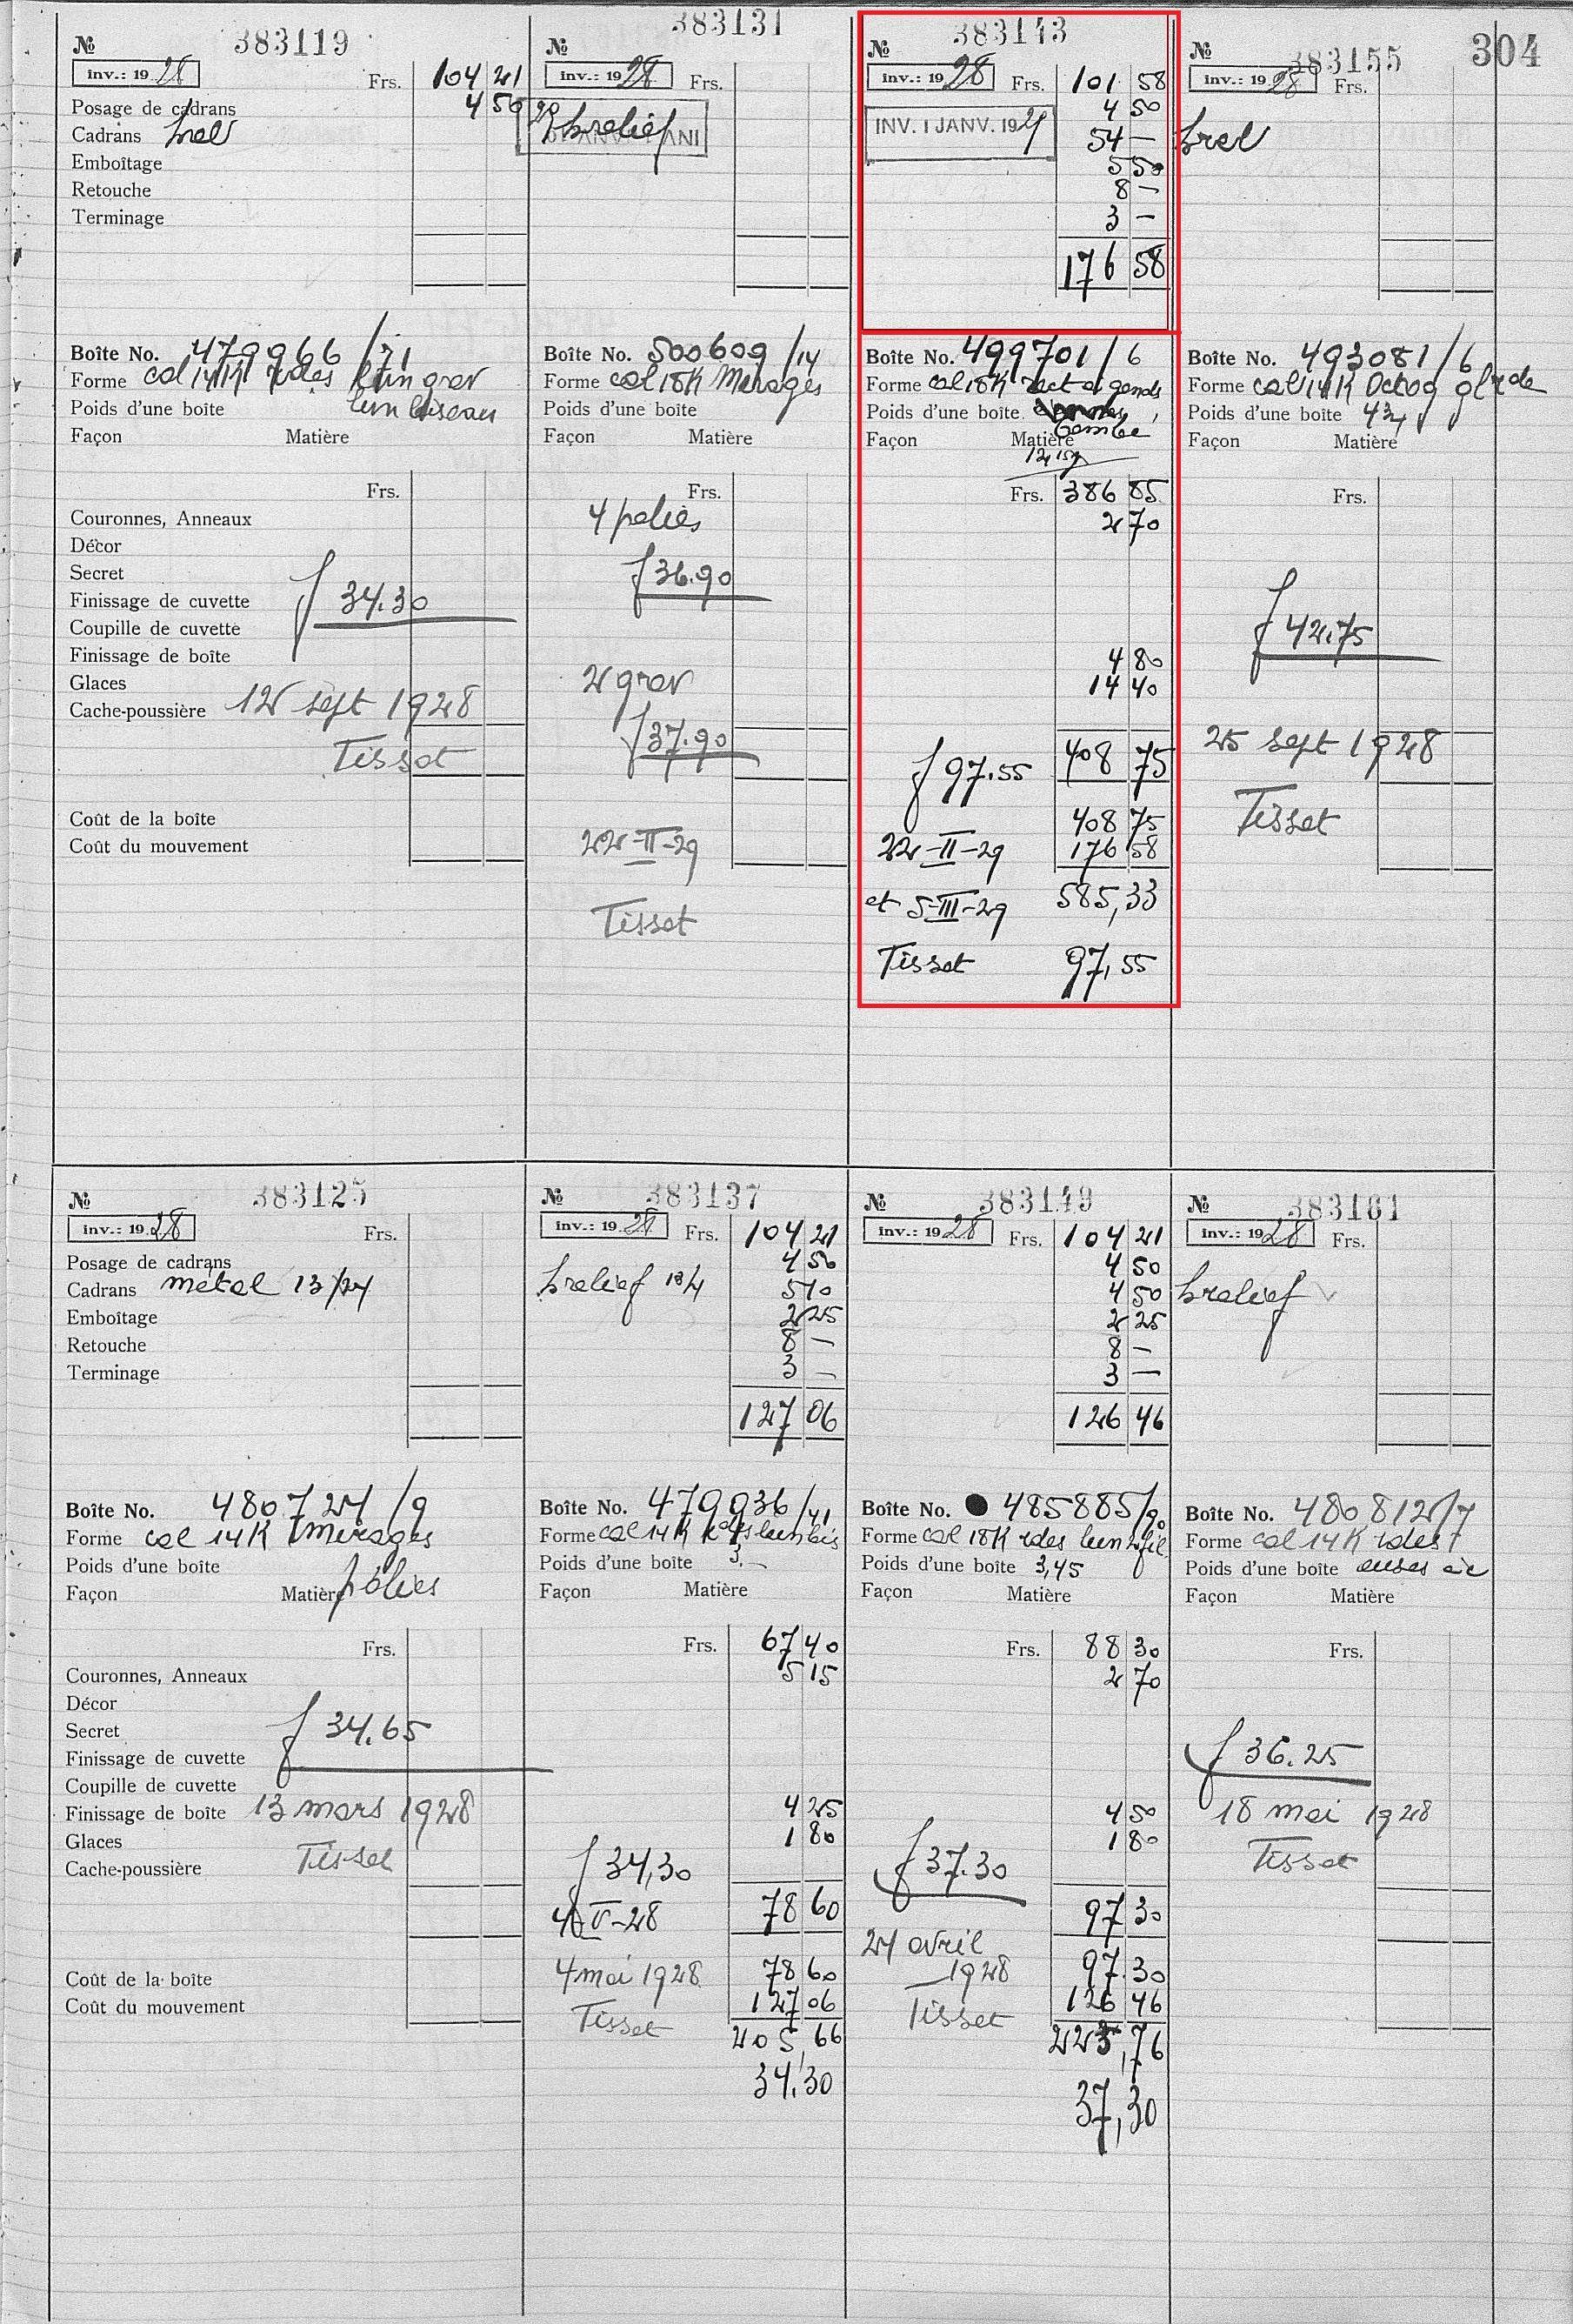 304
№ 383119
inv.: 1928 Frs. 104 21
Posage de cadrans 4 50
Cadrans brel
Emboîtage
Retouche
Terminage
Boîte No. 479966/71
Forme cal 14K rdes lun grav
lun biseau
Poids d'une boîte
Façon Matière
Frs.
Couronnes, Anneaux
Décor
Secret
Finissage de cuvette f 34.30
Coupille de cuvette
Finissage de boîte
Glaces
Cache-poussière 12 sept 1928
Tissot
Coût de la boîte
Coût du mouvement
№ 383131
inv.: 1928 Frs.
brelief
Boîte No. 500609/14
Forme cal 18K Mirages
Poids d'une boîte
Façon Matière
Frs.
4 polies
f 36.90
2 grav
f 37.90
22-II-29
Tissot
№ 383143
inv.: 1928 Frs. 101 58
4 50
INV. 1 JANV. 192
54 –
5 50
8 –
3 –
176 58
Boîte No. 499701/6
Forme cal 18K rect à gonds
Poids d'une boîte
bombé
Façon Matière
Frs. 386 85
2 70
4 80
14 40
f 97.55 408 75
408 75
22-II-29 176 58
et 5-III-29 585,33
Tissot 97,55
№ 383155
inv.: 1928 Frs.
brel
Boîte No. 493081/6
Forme cal 14K Octog gl rde
Poids d'une boîte
Façon Matière
Frs.
f 42.75
25 sept 1928
Tissot
№ 383125
inv.: 1928 Frs.
Posage de cadrans
Cadrans métal 13/24
Emboîtage
Retouche
Terminage
Boîte No. 480724/9
Forme cal 14K Mirages
Poids d'une boîte
Façon Matière polies
Frs.
Couronnes, Anneaux
Décor
Secret f 34.65
Finissage de cuvette
Coupille de cuvette
Finissage de boîte 13 mars 1928
Glaces
Cache-poussière Tissot
Coût de la boîte
Coût du mouvement
№ 383137
inv.: 1928 Frs. 104 21
4 50
brelief 5 10
2 25
8 –
3 –
127 06
Boîte No. 479936/41
Forme cal 14K rdes lun bis
Poids d'une boîte 3.–
Façon Matière
Frs. 67 40
5 15
4 25
1 80
f 34,30
4-V-28 78 60
4 mai 1928 78 60
127 06
Tissot
205,66
34.30
№ 383149
inv.: 1928 Frs. 104 21
4 50
4 50
2 25
8 –
3 –
126 46
Boîte No. 485885/90
Forme cal 18K rdes lun 2 fil
Poids d'une boîte 3,45
Façon Matière
Frs. 88 30
2 70
4 50
1 80
f 37.30
97 30
24 avril
1928 97.30
Tissot 126 46
223,76
37,30
№ 383161
inv.: 1928 Frs.
brelief
Boîte No. 480812/7
Forme cal 14K rdes
Poids d'une boîte anses
Façon Matière
Frs.
f 36.25
18 mai 1928
Tissot